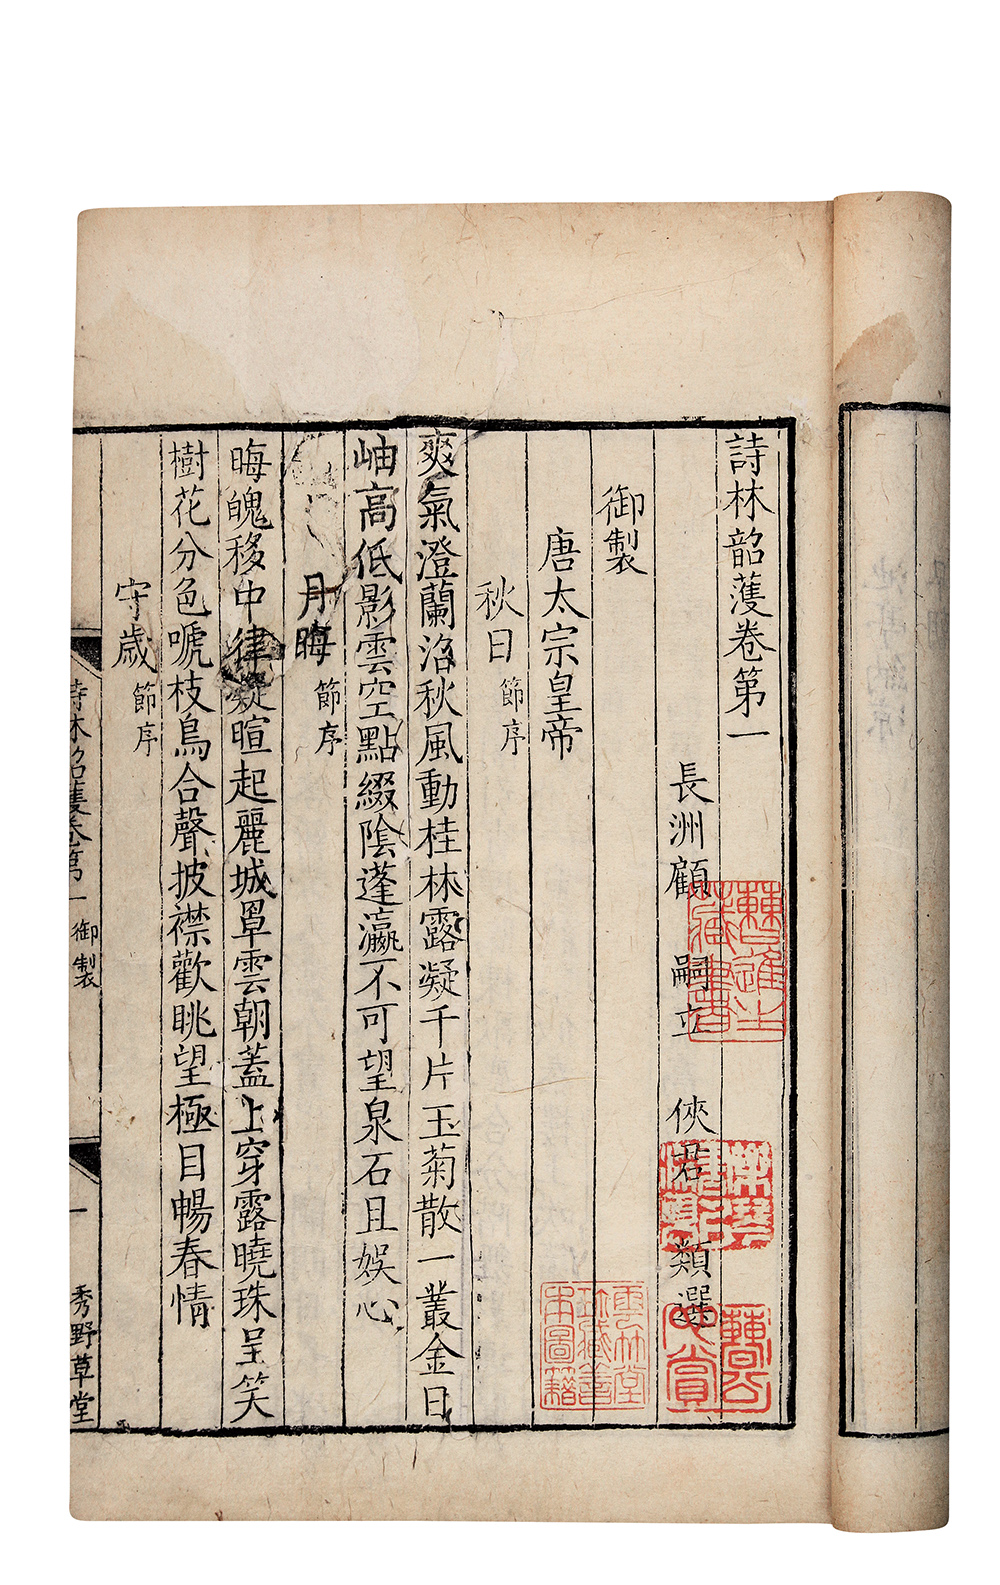 詩林韶濩卷第一
長洲顧嗣立 俠君 類選
御製
唐太宗皇帝
秋日 節序
爽氣澄蘭沼秋風動桂林露凝千片玉菊散一叢金日
岫高低影雲空點綴陰蓬瀛不可望泉石且娯心
月晦 節序
晦魄移中律凝暄起麗城罩雲朝葢上穿露曉珠呈笑
樹花分色嗁枝鳥合聲披襟歡眺望極目暢春情
守歲 節序
詩林韶濩卷第一 御製
一
秀野草堂
雲林堂
珍藏善
本圖籍